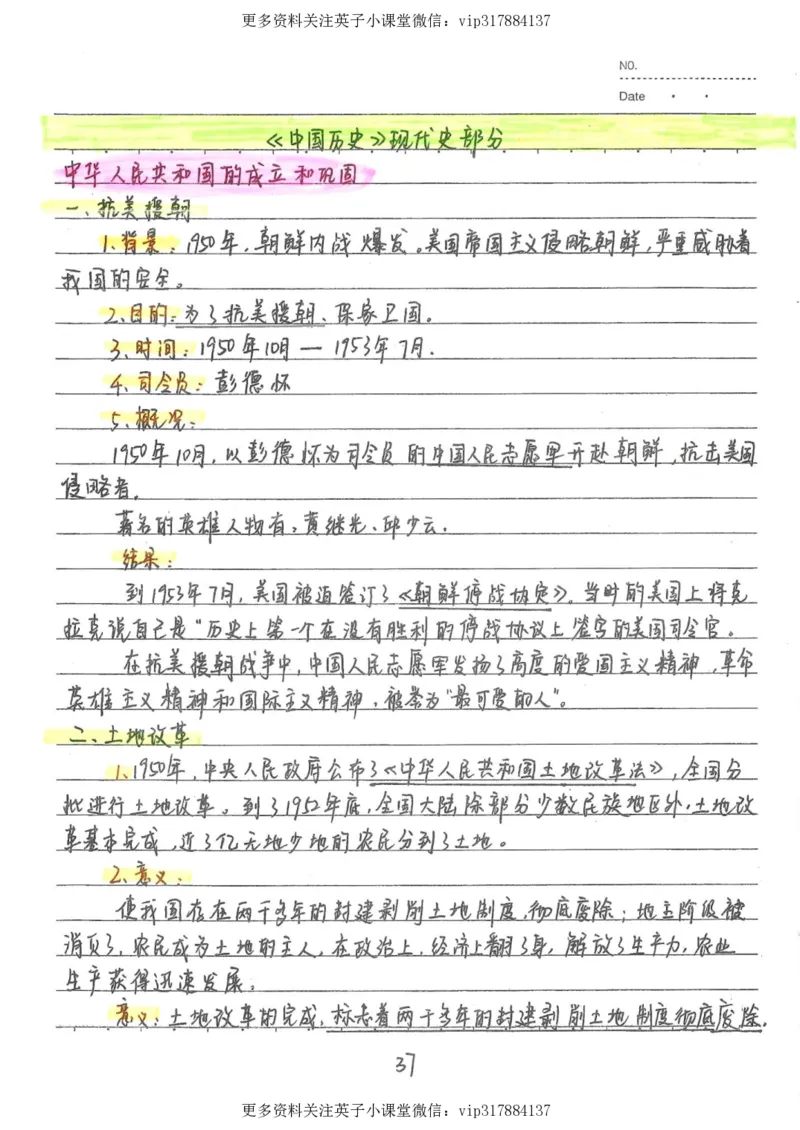 更多资料关注英子小课堂微信：vip317884137
NO.
Date
《中国历史》现代史部分
中华人民共和国的成立和巩固
一、抗美援朝
1.背景：1950年，朝鲜内战爆发。美国帝国主义侵略朝鲜，严重威胁着
我国的安全。
2.目的：为了抗美援朝、保家卫国。
3.时间：1950年10月—1953年7月．
4.司令员：彭德怀
5.概况：
1950年10月，以彭德怀为司令员的中国人民志愿军开赴朝鲜，抗击美国
侵略者．
著名的英雄人物有：黄继光、邱少云．
结果：
到1953年7月，美国被迫签订了《朝鲜停战协定》。当时的美国上将克
拉克说自己是“历史上第一个在没有胜利的停战协议上签字的美国司令官。
在抗美援朝战争中，中国人民志愿军发扬了高度的爱国主义精神，革命
英雄主义精神和国际主义精神，被誉为“最可爱的人”。
二、土地改革
1.1950年，中央人民政府公布了《中华人民共和国土地改革法》，全国分
批进行土地改革。到了1952年底，全国大陆除部分少数民族地区外，土地改
革基本完成，近3亿无地少地的农民分到了土地。
2.意义：
使我国存在两千多年的封建剥削土地制度，彻底废除；地主阶级被
消灭了，农民成为土地的主人，在政治上，经济上翻了身，解放了生产力，农业
生产获得迅速发展。
意义：土地改革的完成，标志着两千多年的封建剥削土地制度彻底废除．
37
更多资料关注英子小课堂微信：vip317884137